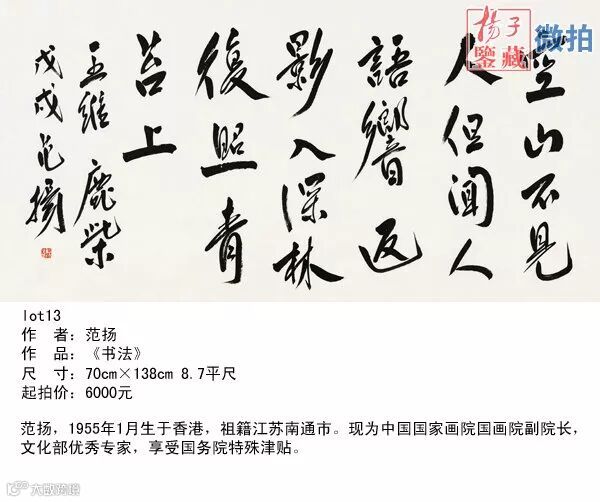 揚子
鑒藏
微拍
空山不見
人但聞人
語響返
影入深林
復照青
苔上
王維 鹿柴
戊戌范揚
lot13
作 者：范扬
作 品：《书法》
尺 寸：70cm×138cm 8.7平尺
起拍价：6000元
范扬，1955年1月生于香港，祖籍江苏南通市。现为中国国家画院国画院副院长，
文化部优秀专家，享受国务院特殊津贴。
大数跨境